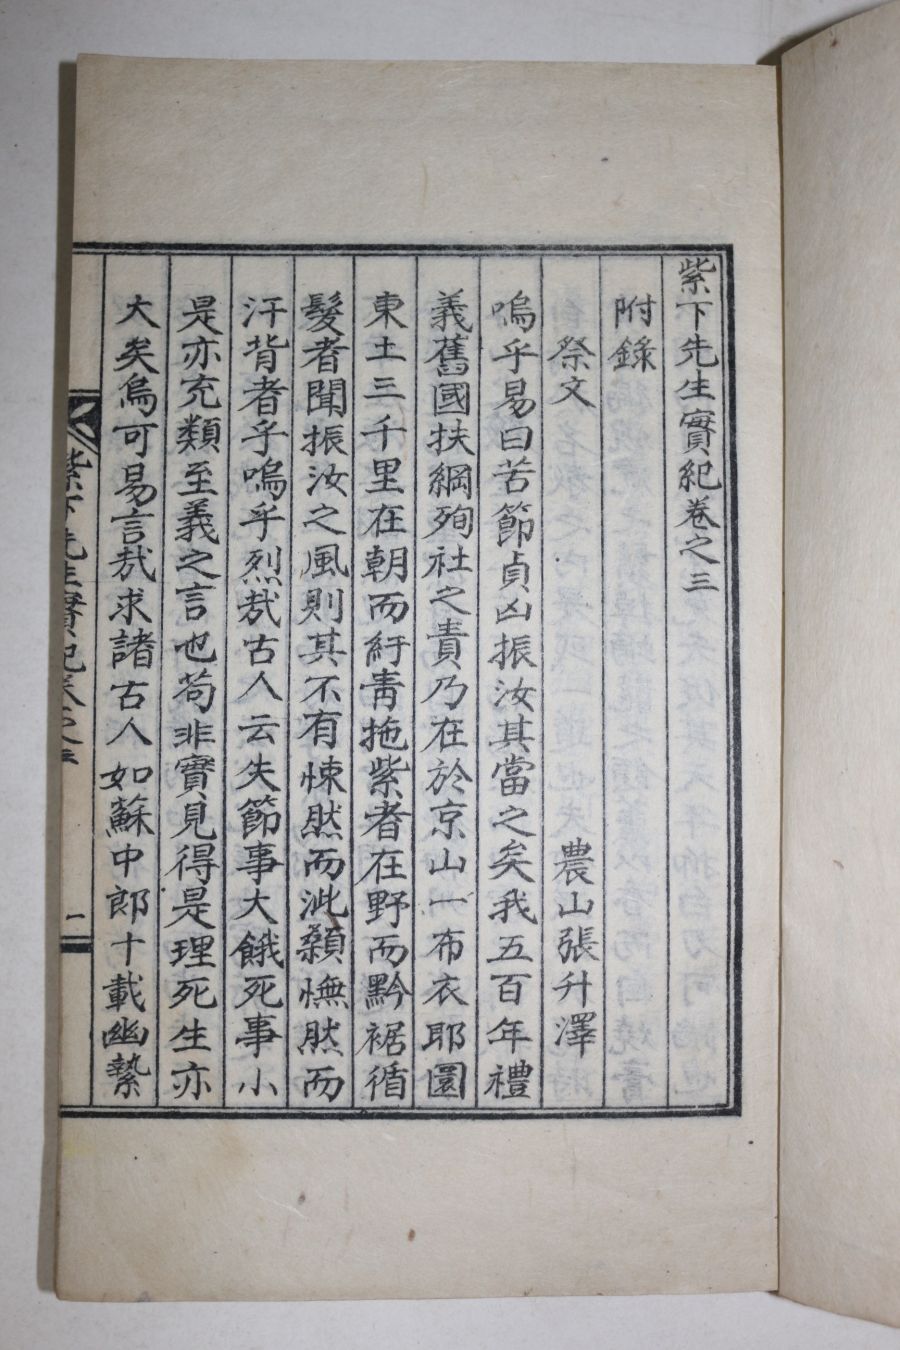 紫下先生實紀卷之三
附錄
祭文 農山張升澤
嗚乎易曰苦節貞凶振汝其當之矣我五百年禮
義舊國扶綱殉社之責乃在於京山一布衣耶圜
東土三千里在朝而紆靑拖紫者在野而黔裾循
髮者聞振汝之風則其不有悚然而泚顙憮然而
汗背者乎嗚乎烈哉古人云失節事大餓死事小
是亦充類至義之言也苟非實見得是理死生亦
大矣烏可易言哉求諸古人如蘇中郞十載幽縶
紫下先生實紀卷之三 一